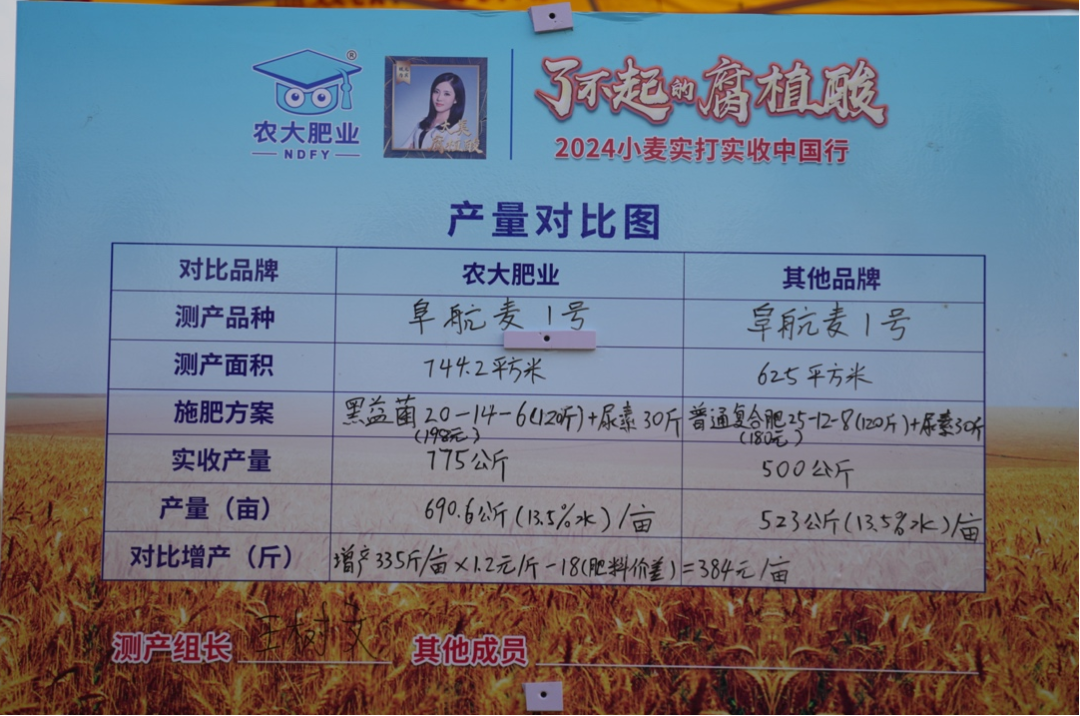 农大肥业
NDFY
®
了不起的腐植酸
2024小麦实打实收中国行
产量对比图
对比品牌 农大肥业 其他品牌
测产品种 阜航麦1号 阜航麦1号
测产面积 744.2平方米 625平方米
施肥方案 黑益菌20-14-6(120斤)+尿素30斤 普通复合肥25-12-8(120斤)+尿素30斤
(198元) (180元)
实收产量 775公斤 500公斤
产量（亩） 690.6公斤(13.5%水)/亩 523公斤(13.5%水)/亩
对比增产（斤） 增产335斤/亩×1.2元/斤-18(肥料价差)=384元/亩
测产组长 王树文 其他成员